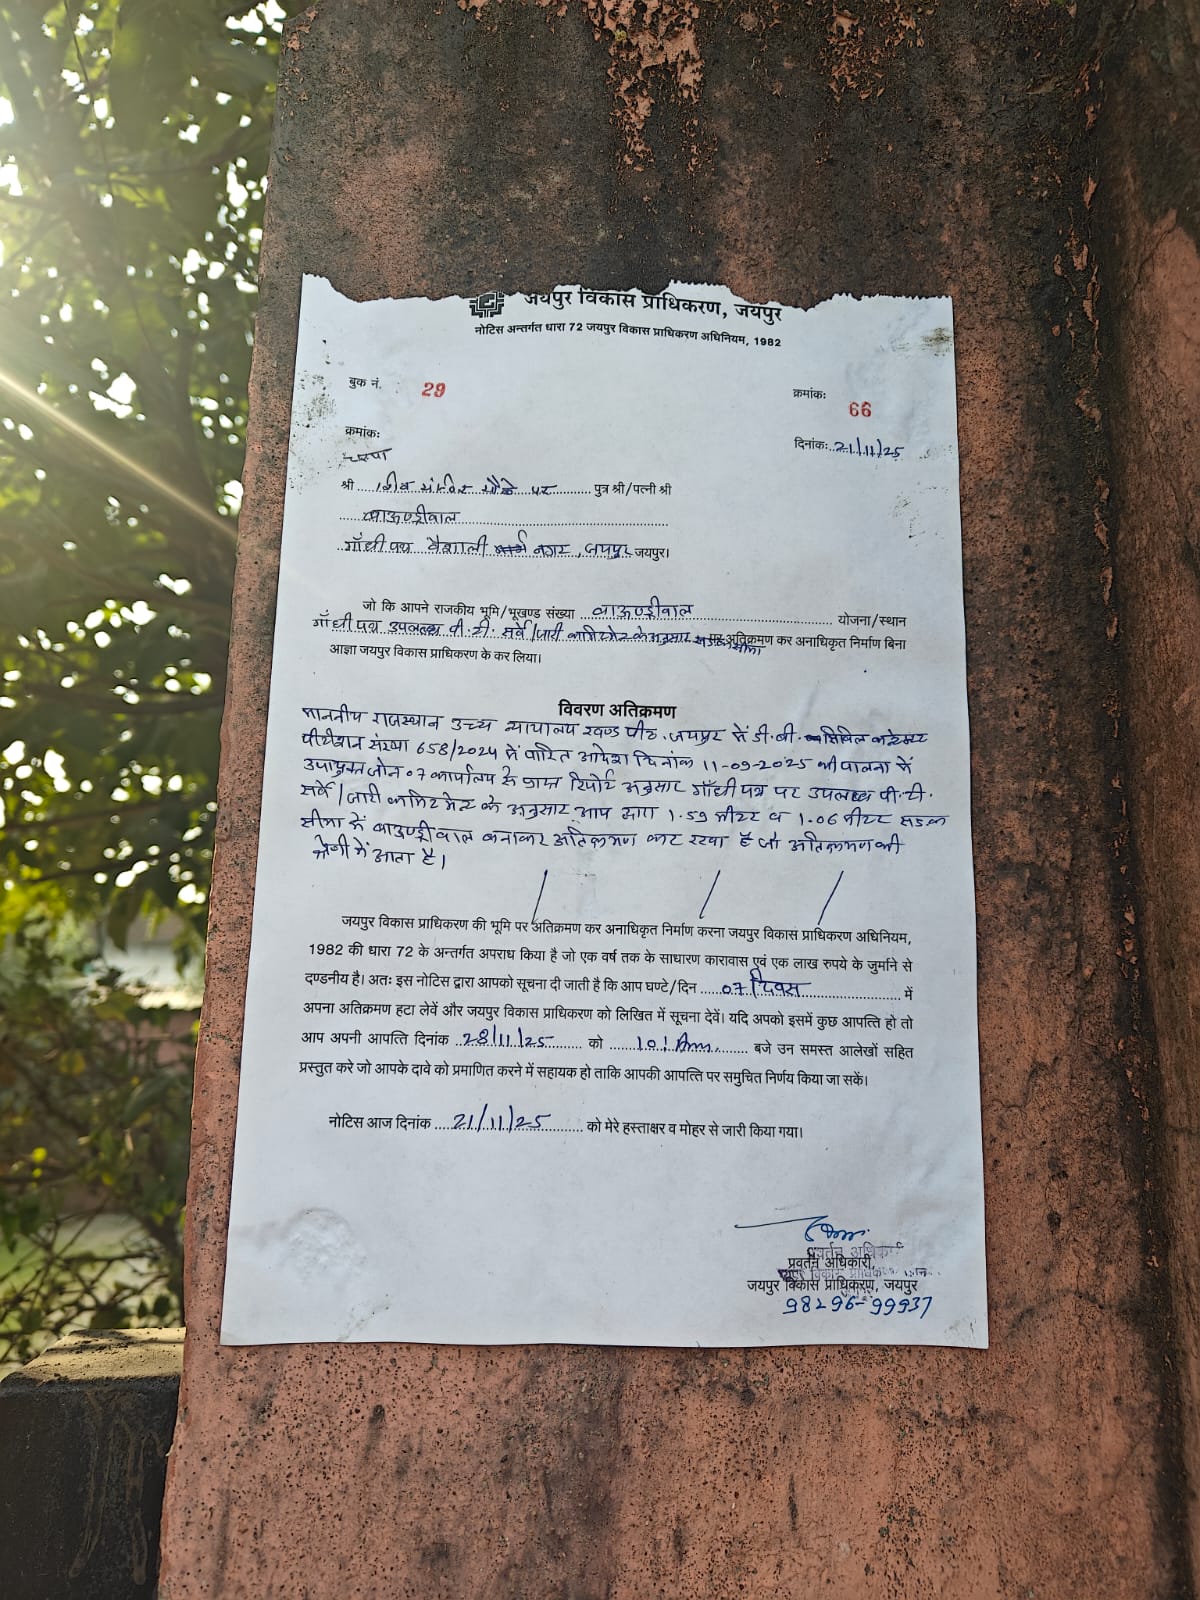 जयपुर विकास प्राधिकरण, जयपुर
नोटिस अन्तर्गत धारा 72 जयपुर विकास प्राधिकरण अधिनियम, 1982
बुक नं. 29
क्रमांकः 66
क्रमांकः
दिनांकः 21/11/25
चस्पा
श्री शिव मंदिर मौके पर पुत्र श्री/पत्नी श्री
बाऊण्ड्रीवाल
गाँधी पथ वैशाली नगर, जयपुर जयपुर।
जो कि आपने राजकीय भूमि/भूखण्ड संख्या बाऊण्ड्रीवाल योजना/स्थान
गाँधी पथ उपलब्ध पी.टी. सर्वे/जारी कमिटमेन्ट के अनुसार सड़क सीमा पर अतिक्रमण कर अनाधिकृत निर्माण बिना
आज्ञा जयपुर विकास प्राधिकरण के कर लिया।
विवरण अतिक्रमण
माननीय राजस्थान उच्च न्यायालय खण्ड पीठ, जयपुर में डी.बी. सिविल कन्टेम्प्ट
पीटीशन संख्या 658/2024 में पारित आदेश दिनांक 11-09-2025 की पालना में
उपायुक्त जोन 07 कार्यालय से प्राप्त रिपोर्ट अनुसार गाँधी पथ पर उपलब्ध पी.टी.
सर्वे/जारी कमिटमेन्ट के अनुसार आप द्वारा 1.59 मीटर व 1.06 मीटर सड़क
सीमा में बाऊण्ड्रीवाल बनाकर अतिक्रमण कर रखा है जो अतिक्रमण की
श्रेणी में आता है।
जयपुर विकास प्राधिकरण की भूमि पर अतिक्रमण कर अनाधिकृत निर्माण करना जयपुर विकास प्राधिकरण अधिनियम,
1982 की धारा 72 के अन्तर्गत अपराध किया है जो एक वर्ष तक के साधारण कारावास एवं एक लाख रुपये के जुर्माने से
दण्डनीय है। अतः इस नोटिस द्वारा आपको सूचना दी जाती है कि आप घण्टे/दिन 07 दिवस में
अपना अतिक्रमण हटा लेवें और जयपुर विकास प्राधिकरण को लिखित में सूचना देवें। यदि अपको इसमें कुछ आपत्ति हो तो
आप अपनी आपत्ति दिनांक 28/11/25 को 10:Am बजे उन समस्त आलेखों सहित
प्रस्तुत करे जो आपके दावे को प्रमाणित करने में सहायक हो ताकि आपकी आपत्ति पर समुचित निर्णय किया जा सकें।
नोटिस आज दिनांक 21/11/25 को मेरे हस्ताक्षर व मोहर से जारी किया गया।
प्रवर्तन अधिकारी
प्रवर्तन अधिकारी,
जयपुर विकास प्राधिकरण, जयपुर
98296-99937